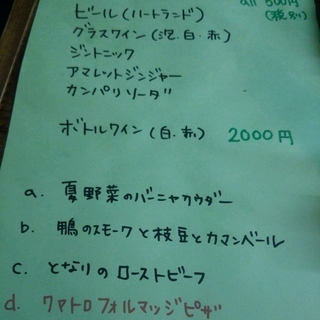 ビール(ハートランド)
all 500円
(税別)
グラスワイン(泡.白.赤)
ジントニック
アマレットジンジャー
カンパリソーダ
ボトルワイン(白.赤) 2000円
a. 夏野菜のバーニャカウダー
b. 鴨のスモークと枝豆とカマンベール
c. となりのローストビーフ
d. クァトロフォルマッジピザ